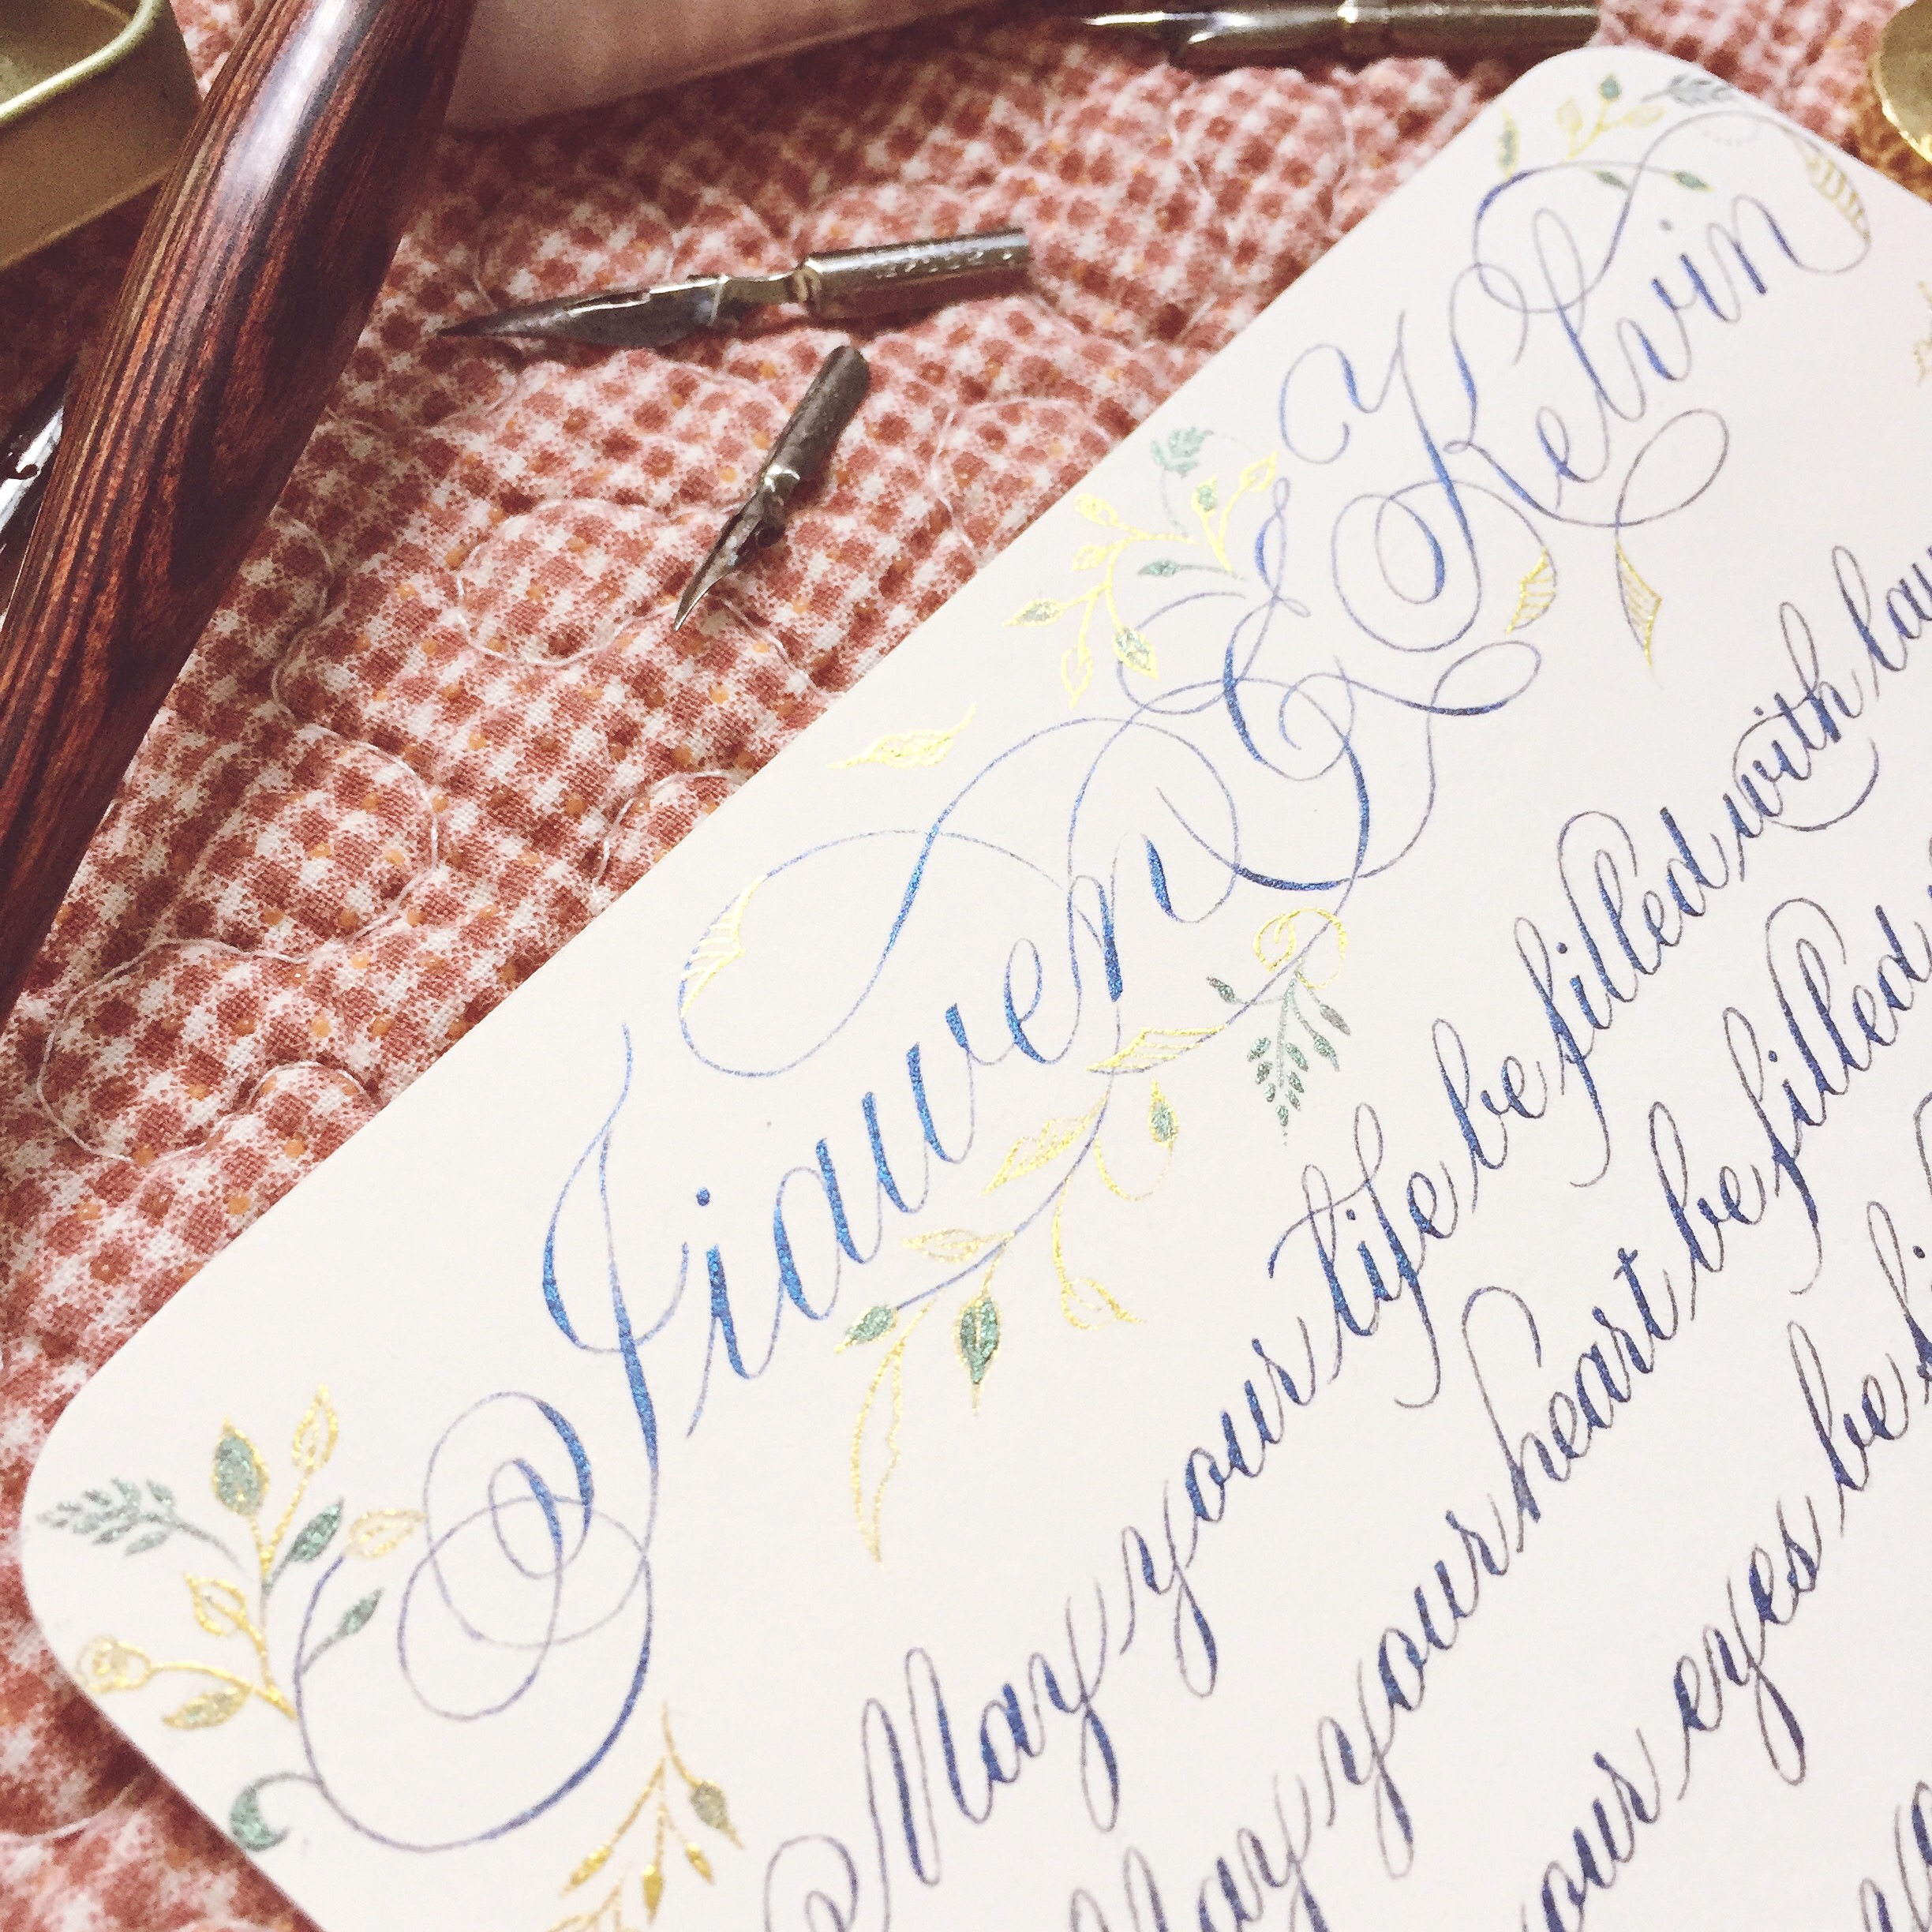 Jiawen & Kelvin
May your life be filled with
May your heart be filled
your eyes be